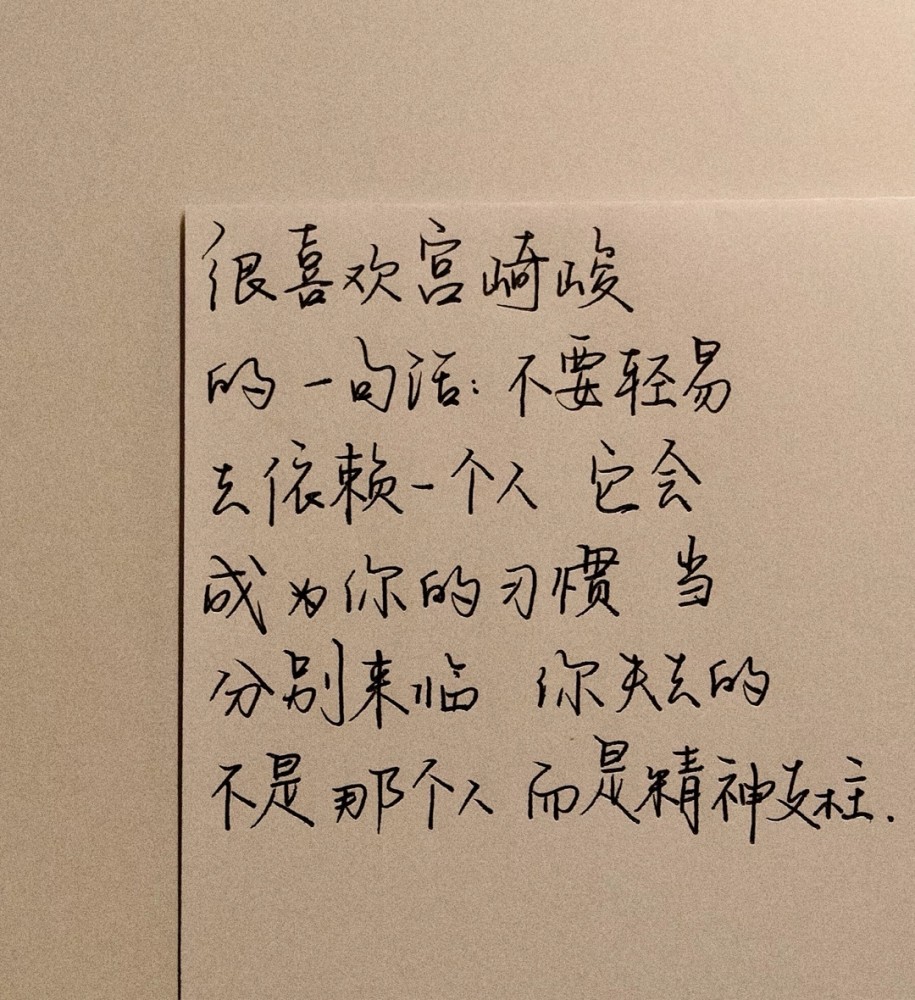 很喜欢宫崎峻
的一句话:不要轻易
去依赖一个人 它会
成为你的习惯 当
分别来临 你失去的
不是那个人 而是精神支柱.